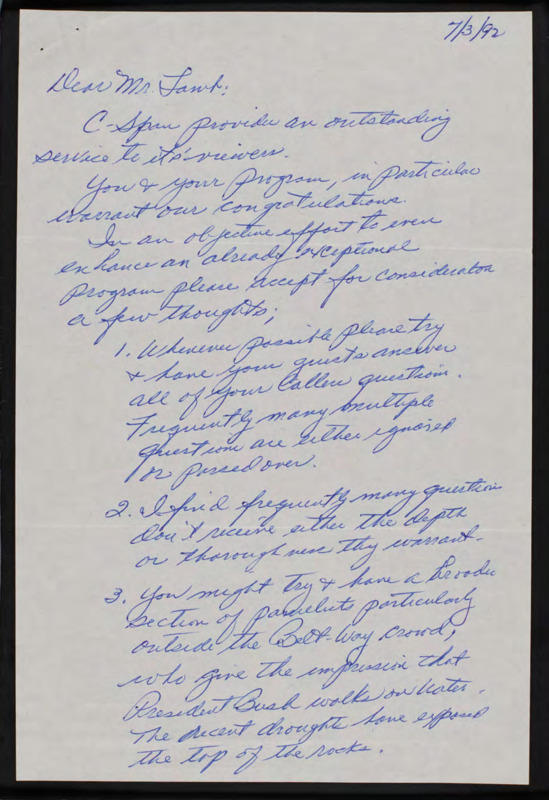 7/3/92
Dear Mr. Lamb:
C-Span provides an outstanding
service to it's viewers.
You & your program, in particular
warrant our congratulations.
In an objective effort to even
enhance an already exceptional
program please accept for consideration
a few thoughts;
1. Whenever possible please try
& have your guests answer
all of your callers questions.
Frequently many multiple
questions are either ignored
or passed over.
2. I find frequently many questions
don't receive either the depth
or thoroughness they warrant.
3. You might try & have a broader
section of panelists particularly
outside the Belt-Way crowd,
who give the impression that
President Bush walks on water.
The recent droughts have exposed
the top of the rocks.